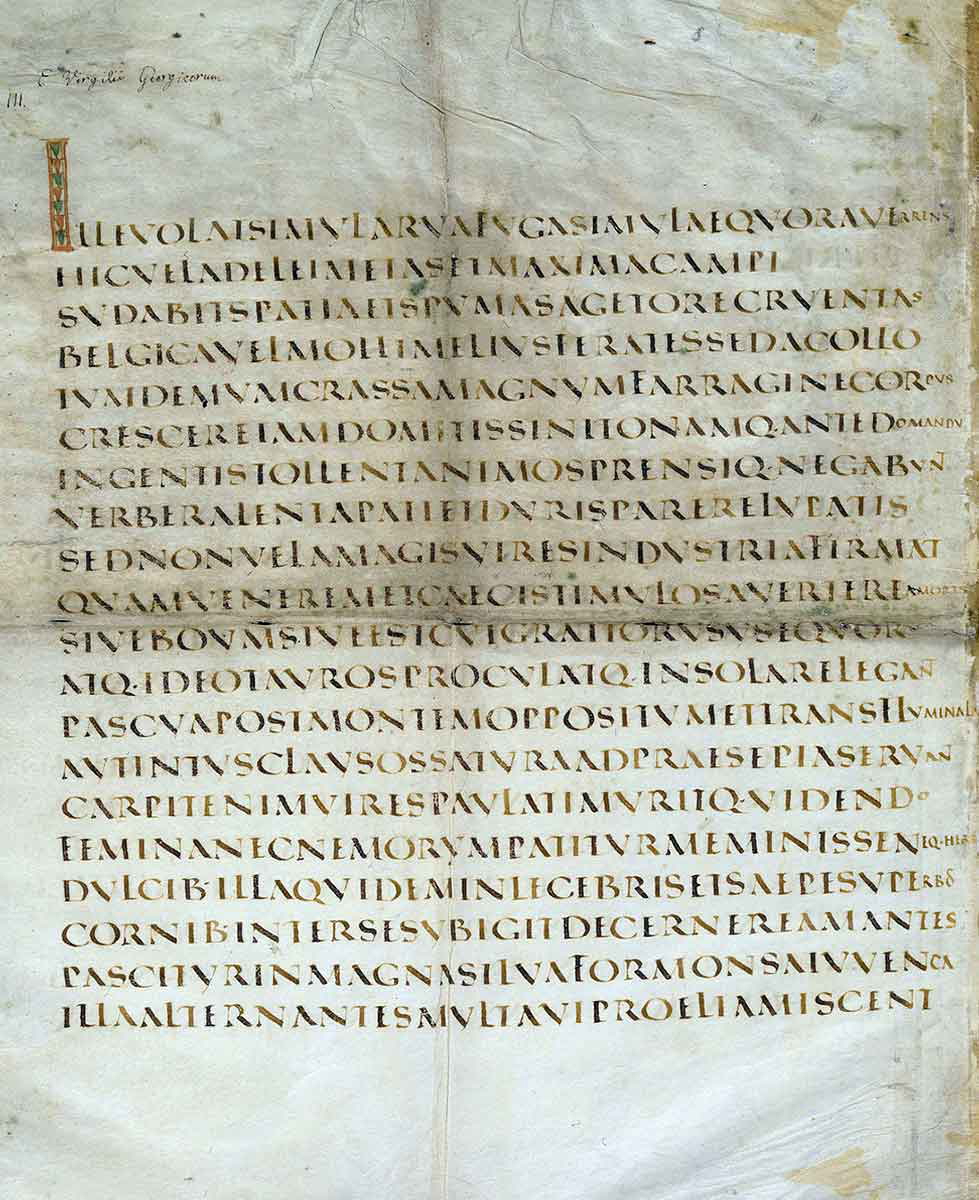 E Virgilii Georgicorum
III.
ILLEVOLATSIMVLARVAFVGASIMVLAEQVORAVERRENS
HICVELADELEIMETASETMAXIMACAMPI
SVDABITSPATIAETSPVMASAGETORECRVENTAS
BELGICAVELMOLLIMELIVSFERATESSEDACOLLO
TVMDEMVMCRASSAMAGNVMFARRAGINECORPVS
CRESCEREIAMDOMITISSINITONAMQ·ANTEDOMANDV
INGENTISTOLLENTANIMOSPRENSIQ·NEGABVN̄
VERBERALENTAPATIETDVRISPARERELVPATIS
SEDNONVLLAMAGISVIRESINDVSTRIAFIRMAT
QVAMVENEREMETCAECISTIMVLOSAVERTEREAMORIS
SIVEBOVMSIVEESTCVIGRATIORVSVSEQVOR
ATQ·IDEOTAVROSPROCVLATQ·INSOLARELEGAN̄
PASCVAPOSTMONTEMOPPOSITVMETTRANSFLVMINALA
AVTINTVSCLAVSOSSATVRAADPRAESEPIASERVAN̄
CARPITENIMVIRESPAVLATIMVRITQ·VIDENDO
FEMINANECNEMORVMPATITVRMEMINISSENEQ·HER
DVLCIB·ILLAQVIDEMINLECEBRISETSAEPESVPERBOS
CORNIB·INTERSESVBIGITDECERNEREAMANTES
PASCITVRINMAGNASILVAFORMONSAIVVENCA
ILLAALTERNANTESMVLTAVIPROELIAMISCENT